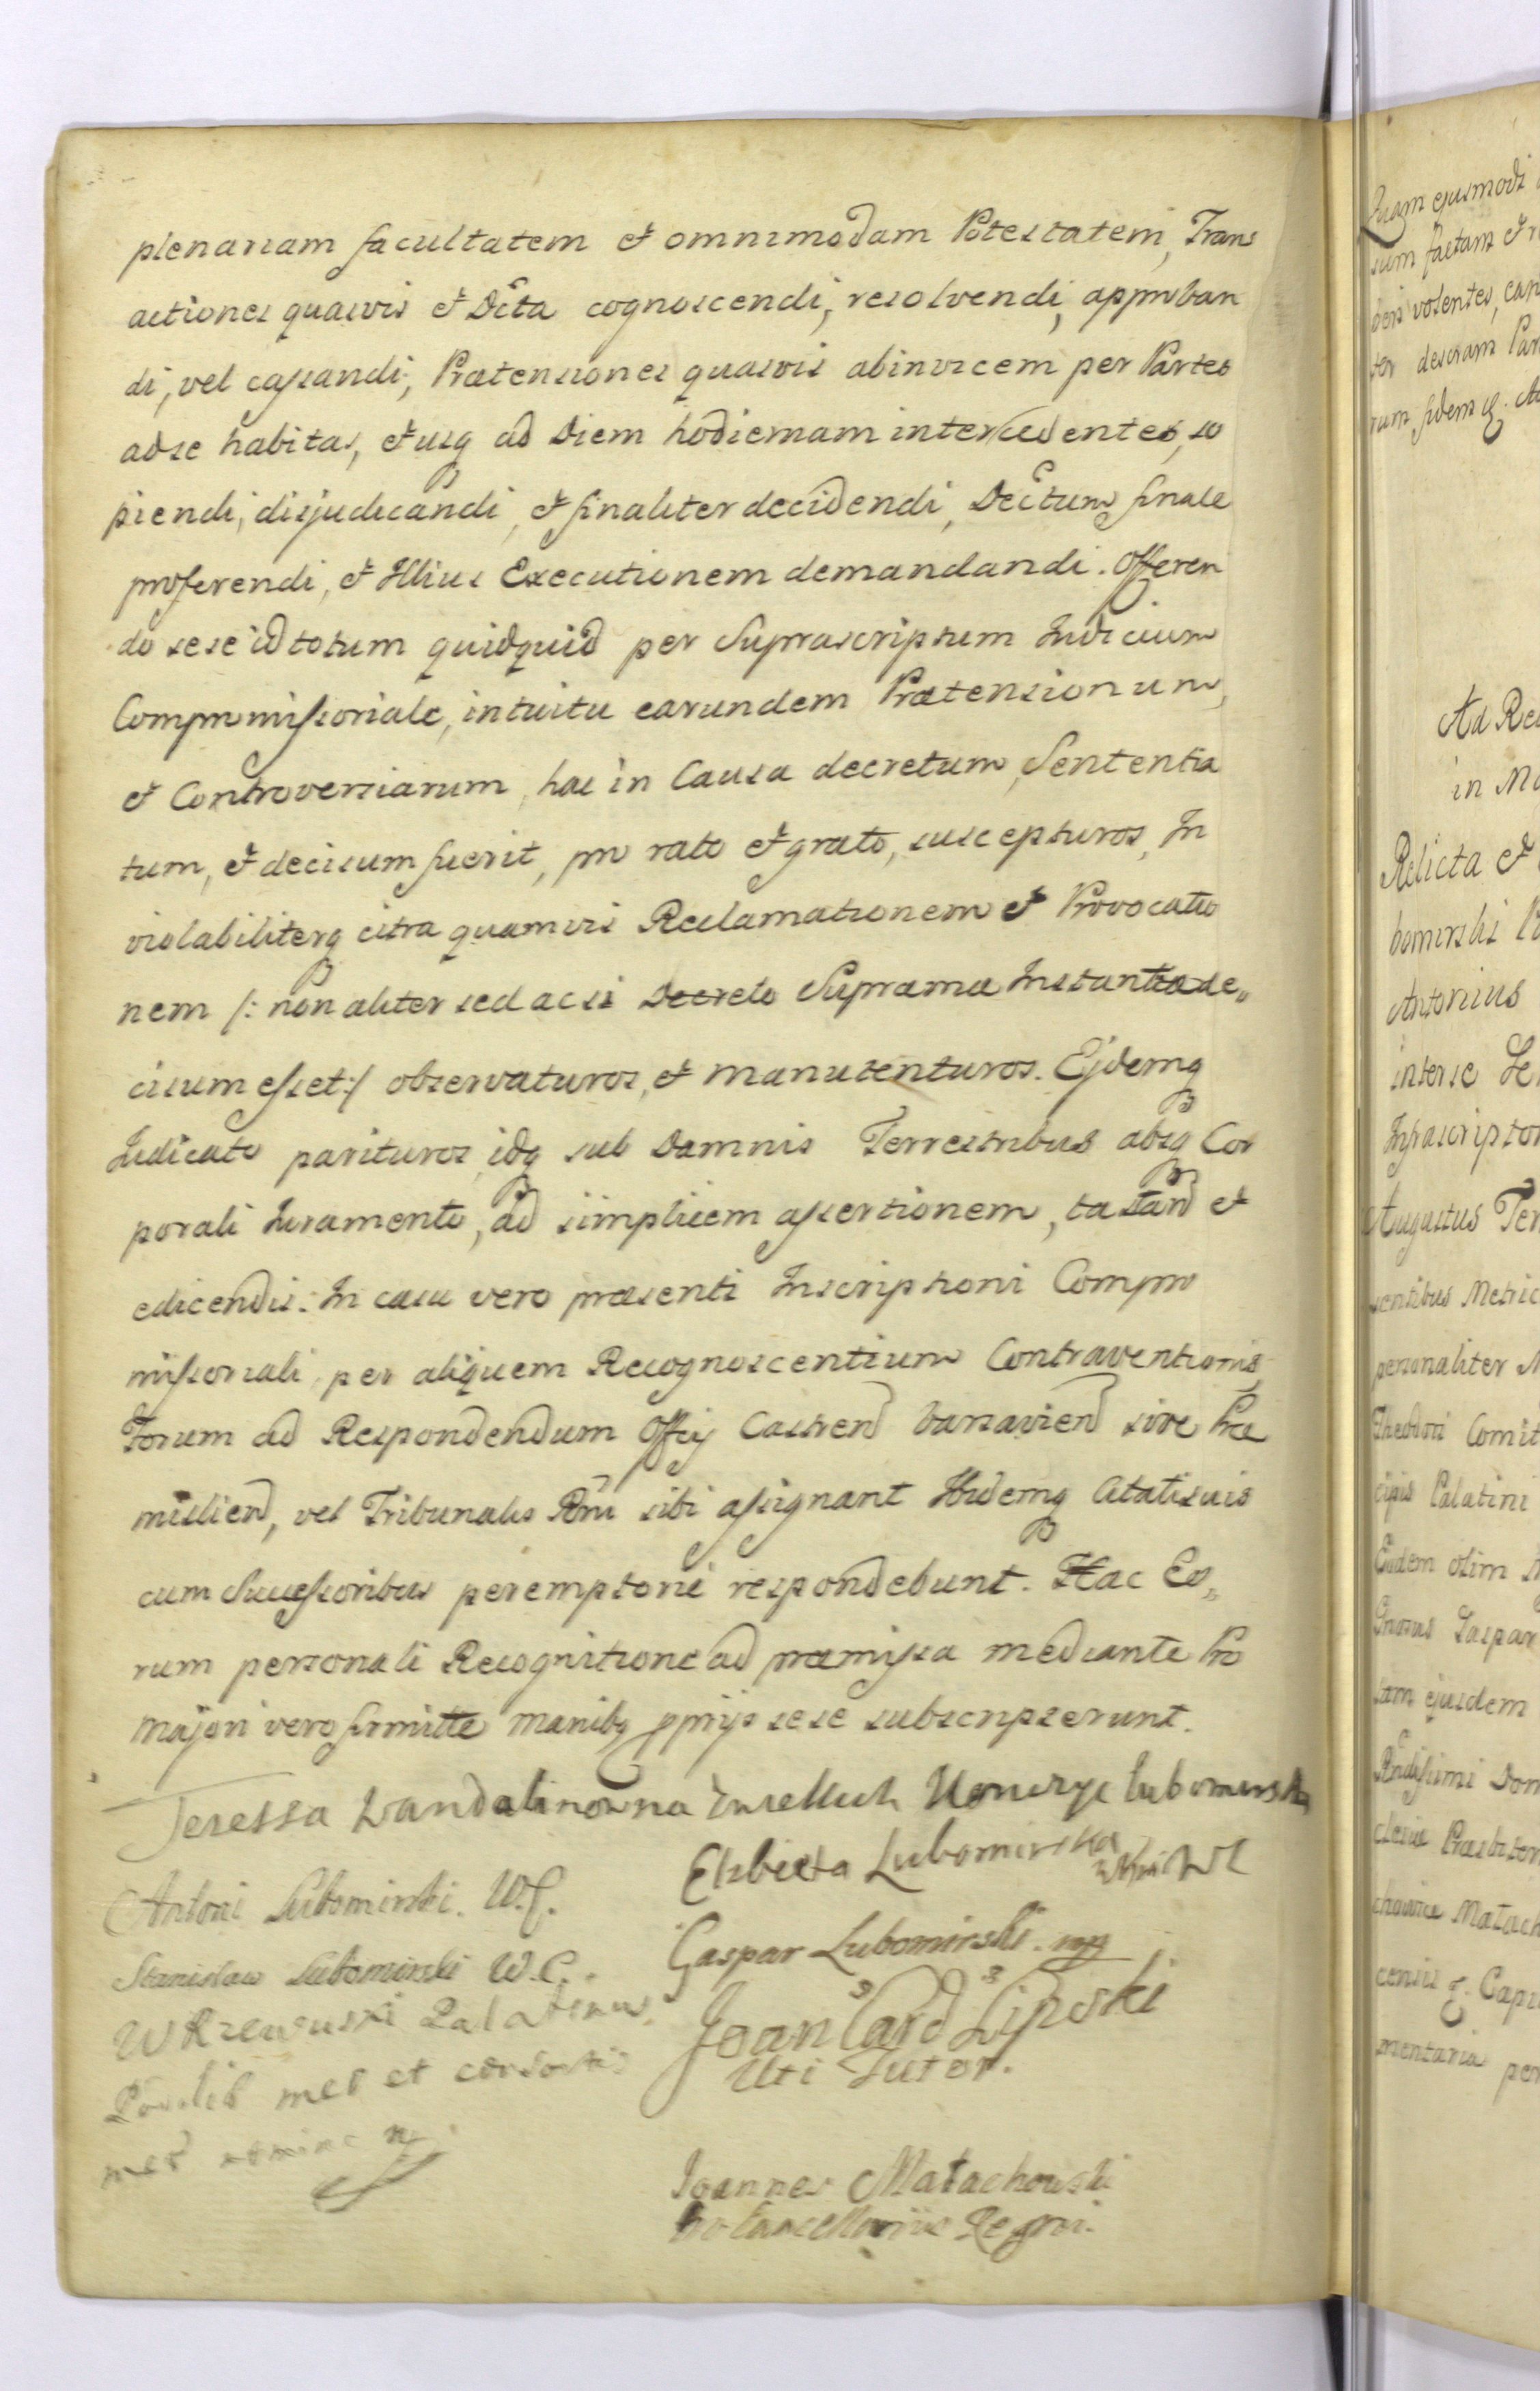 plenariam facultatem et omnimodam Potestatem, Trans
actiones quasvis et Dcta cognoscendi, resolvendi, approban
di, vel cassandi, Prætensiones quasvis abinvicem per Partes
adse habitas, et usq ad Diem hodiernam intercedentes, so
piendi, disjudicandi, et finaliter decidendi, Dectum finale
proferendi, et Illius Executionem demandandi. Offeren
do sese id totum quidquid per Suprascriptum Judicium
Compromissoriale, intuitu earundem Prætensionum,
et Controversiarum, hac in Causa decretum, Sententia
tum, et decisum fuerit, pro rato et grato, suscepturos, In
violabiliterq citra quamvis Reclamationem et Provocatio
nem /: non aliter sed ac si Decreto Supræmæ Instantiæ de„
cisum esset :/ observaturos, et manutenturos. Ejdemq
Judicato parituros, idq sub Damnis Terrestribus absq Cor
porali Juramento, ad simplicem assertionem, taxand et
edicendis. In casu vero præsenti Inscriptioni Compro
missoriali per aliquem Recognoscentium Contraventionis
Forum ad Respondendum Officy Castren Varsavien sive Præ
mislien, vel Tribunalis Rni sibi assignant Ibidemq Citati suis
cum Successoribus peremptorie respondebunt. Hac Eo„
rum personali Recognitione ad præmissa mediante Pro
majori vero firmitte manibq pprijs sese subscripserunt.
Teressa Wandalinowna Lubomirska
Antoni Lubomirski. W. L.
Elzbieta Lubomirska
Stanislaw Lubomirski W. C.
Gaspar Lubomirski. mp
W Rzewuski Palatinus
Joan Card Lipski
Uti Tutor.
Podoliæ meo et consortis
meo nomine
Joannes Małachowski
Procancellarius Regni.
Quam ejusmodi
sum factam et
volentes, cap
rum fidem
Ad Re
in M
Relicta et
bomirski
Antonius
inter se
Infrascriptor
Augustus Ter
Metric
personaliter
Theodori Comit
Palatini
olim
Gaspar
ejusdem
Rndissimi Dom
clesiæ Præsbiter
Małach
Capi
mentaria per